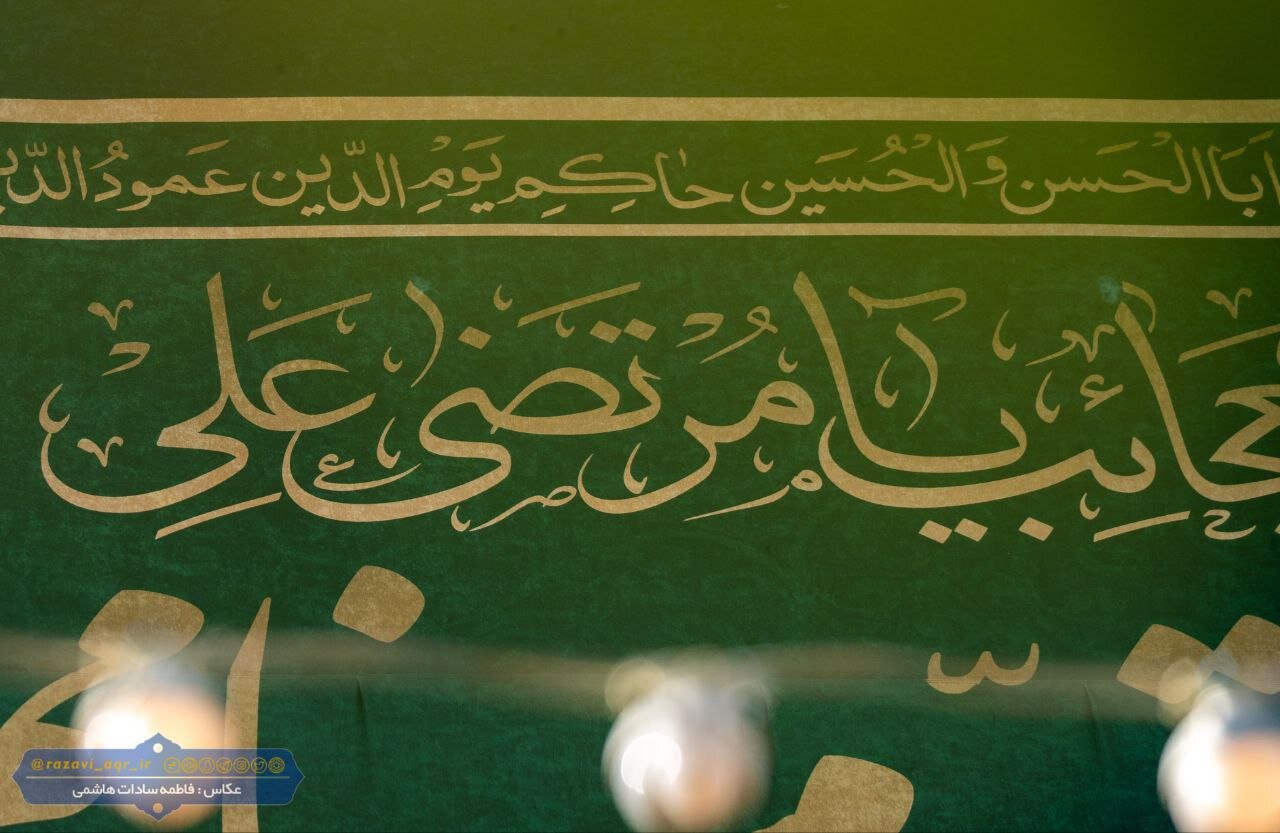 اَبَاالْحَسن وَالْحُسَین حٰاکِمِ یَوْمِ الدّین عَمودُالدّ
عَجٰائِب یٰا مُرتَضیٰ عَلی
@razavi_aqr_ir
عکاس : فاطمه سادات هاشمی